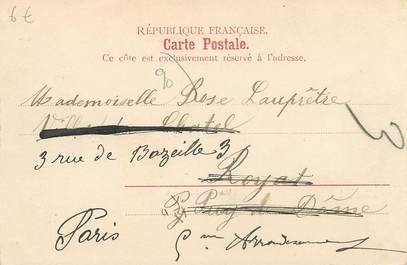 6€
RÉPUBLIQUE FRANÇAISE.
Carte Postale.
Ce côte est exclusivement réservé à l'adresse.
Mademoiselle Rose Lauprêtre
3 rue de Bazeille 3
Royat
Puy de Dôme
Paris 5 me Arrondissement